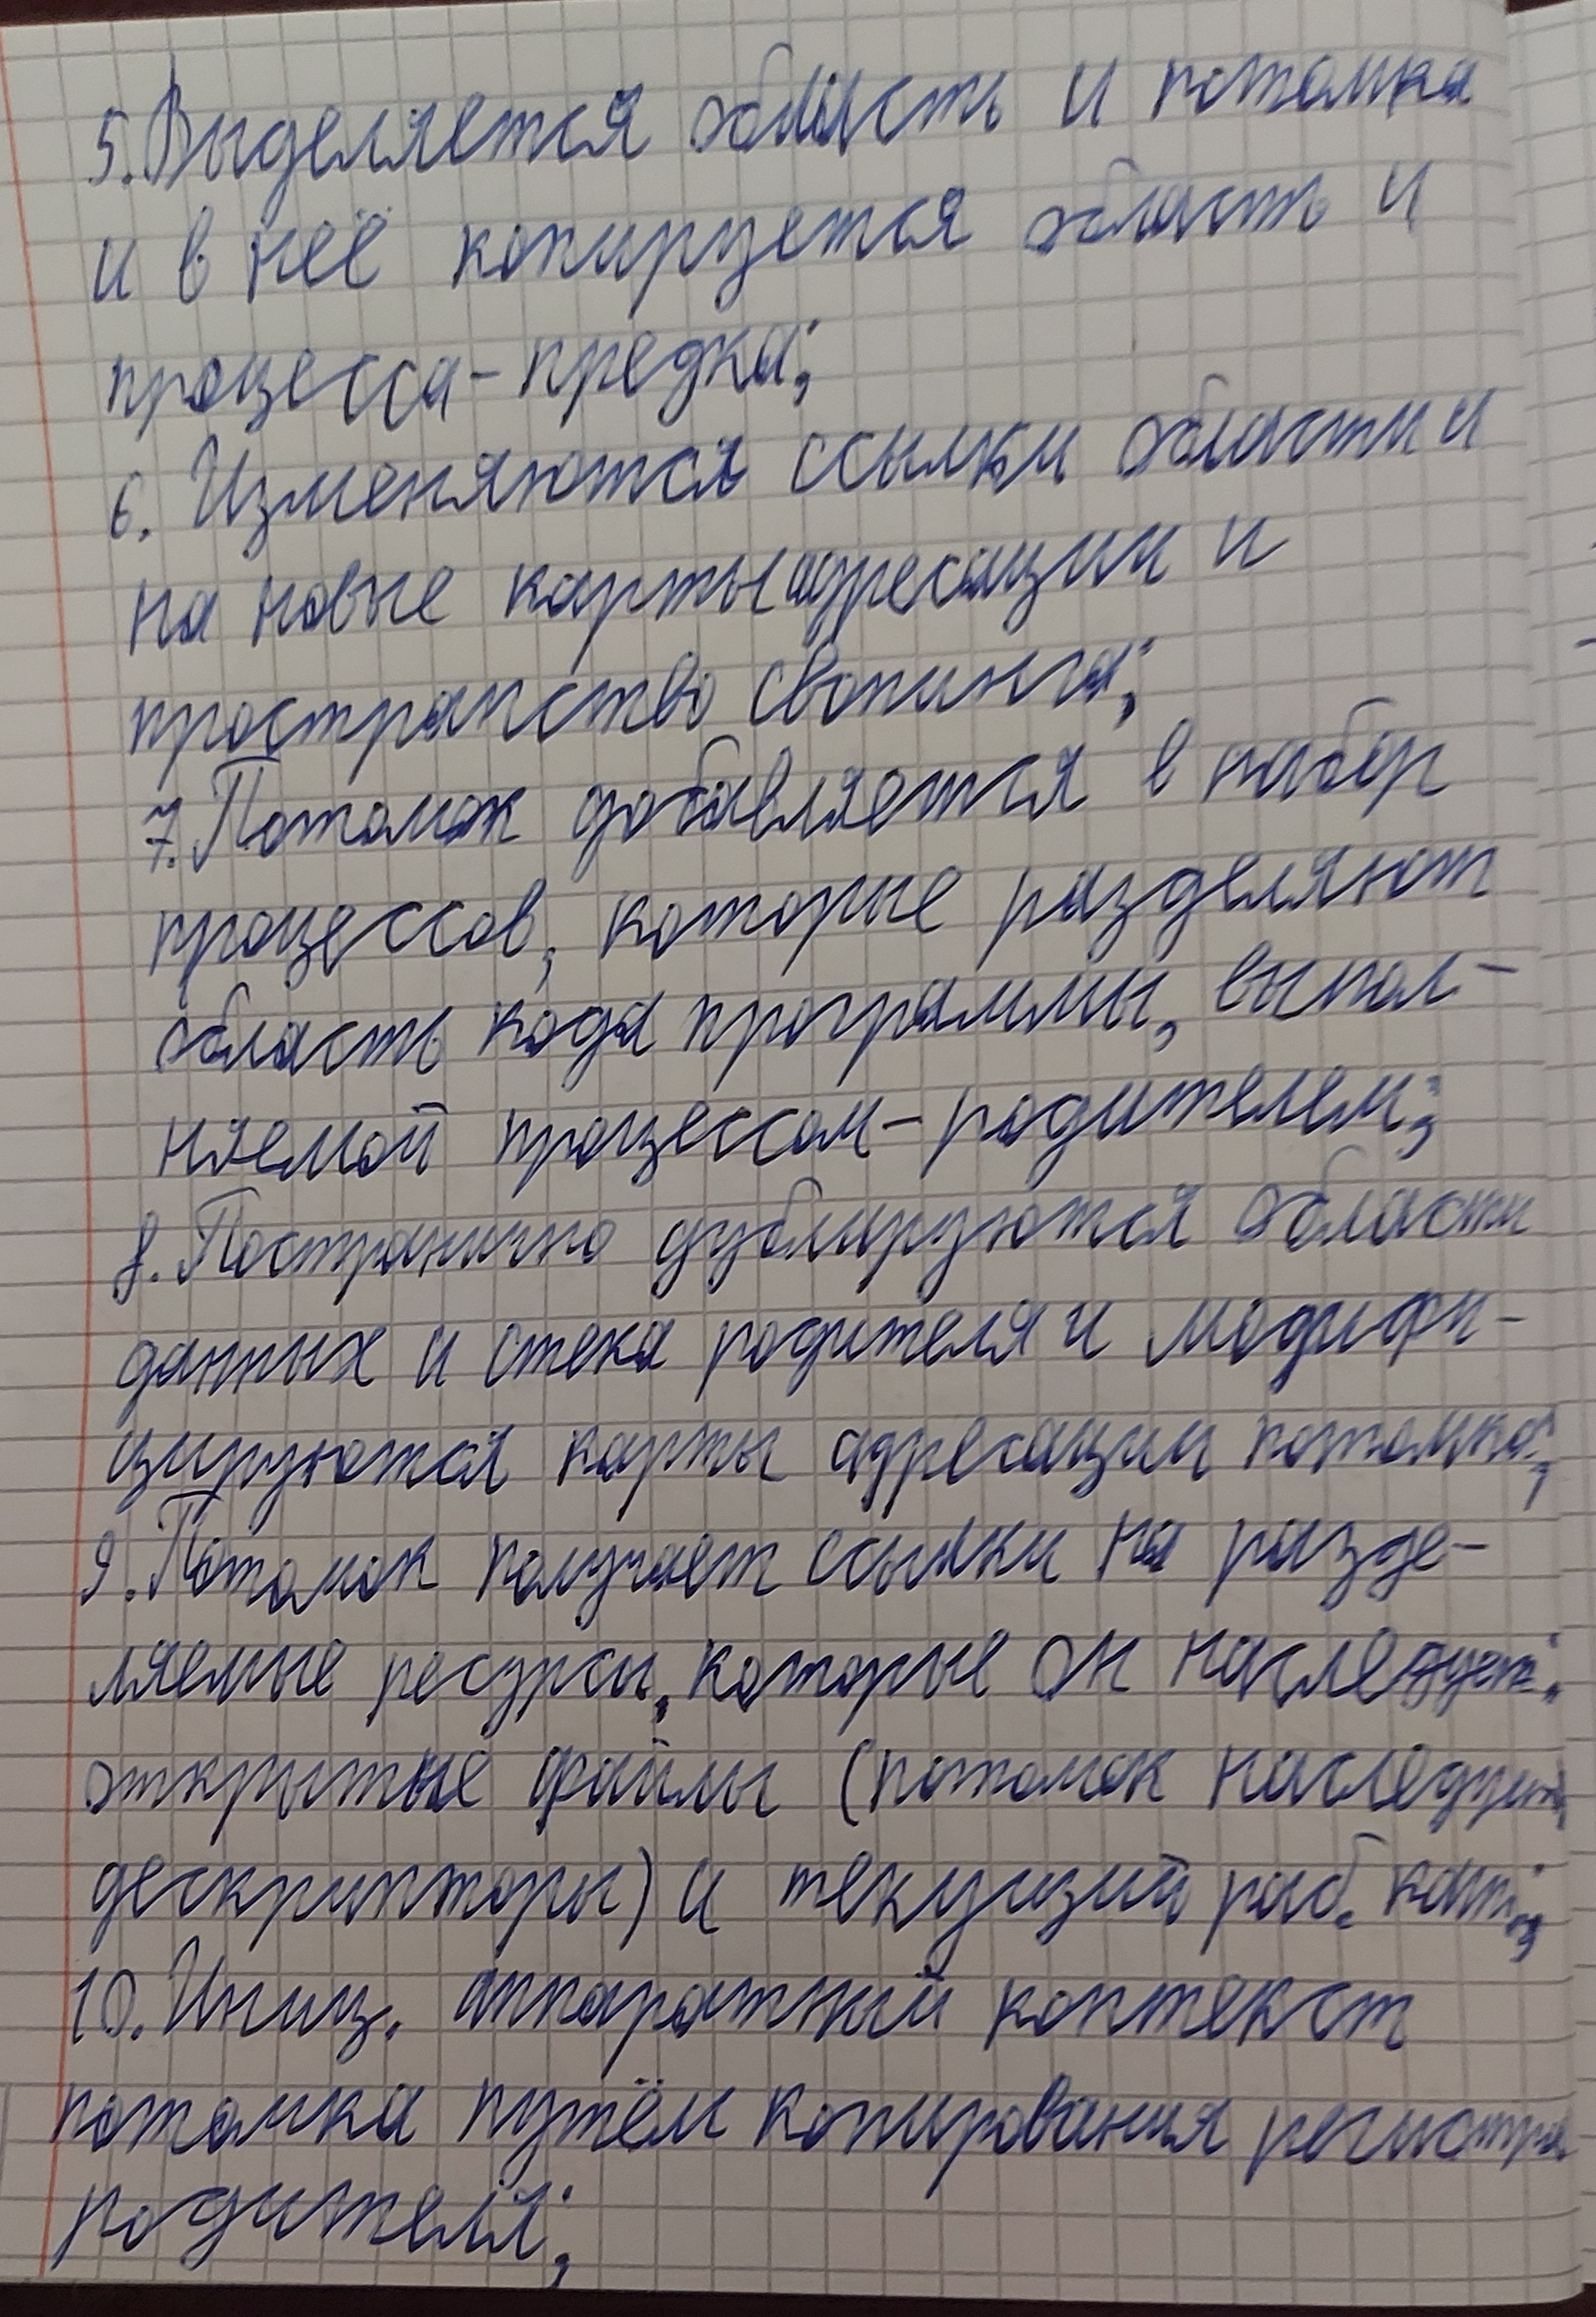 5. Выделяется область и потомка
и в неё копируется область и
процесса-предка;
6. Изменяются ссылки области и
на новые карты адресации и
пространство свопинга;
7. Потомок добавляется в набор
процессов, которые разделяют
область кода программы, выпол-
няемой процессом-родителем;
8. Постранично дублируются области
данных и стека родителя и модифи-
цируются карты адресации потомка;
9. Потомок получает ссылки на разде-
ляемые ресурсы, которые он наследует:
открытые файлы (потомок наследует
дескрипторы) и текущий раб. кат.;
10. Иниц. аппаратный контекст
потомка путём копирования регистра
родителя;